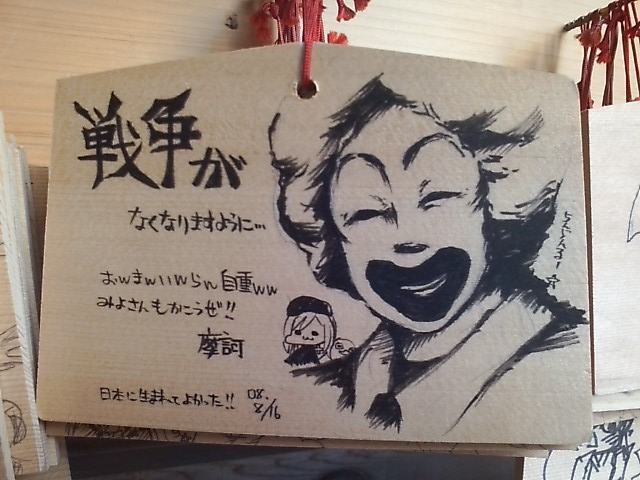 戦争が
なくなりますように…
おwまwいwらw自重ww
みよさんもかこうぜ!!
摩訶
日本に生まれてよかった!!
08.
8/16